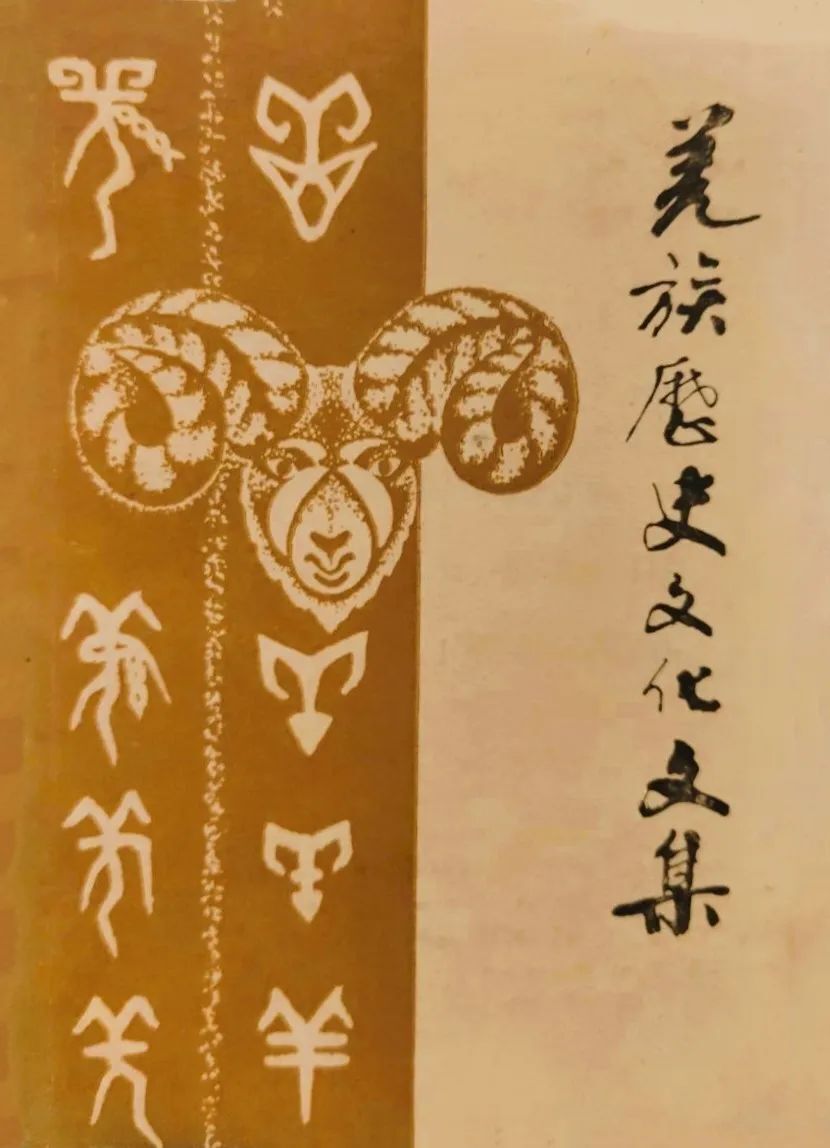 羌族歷史文化文集